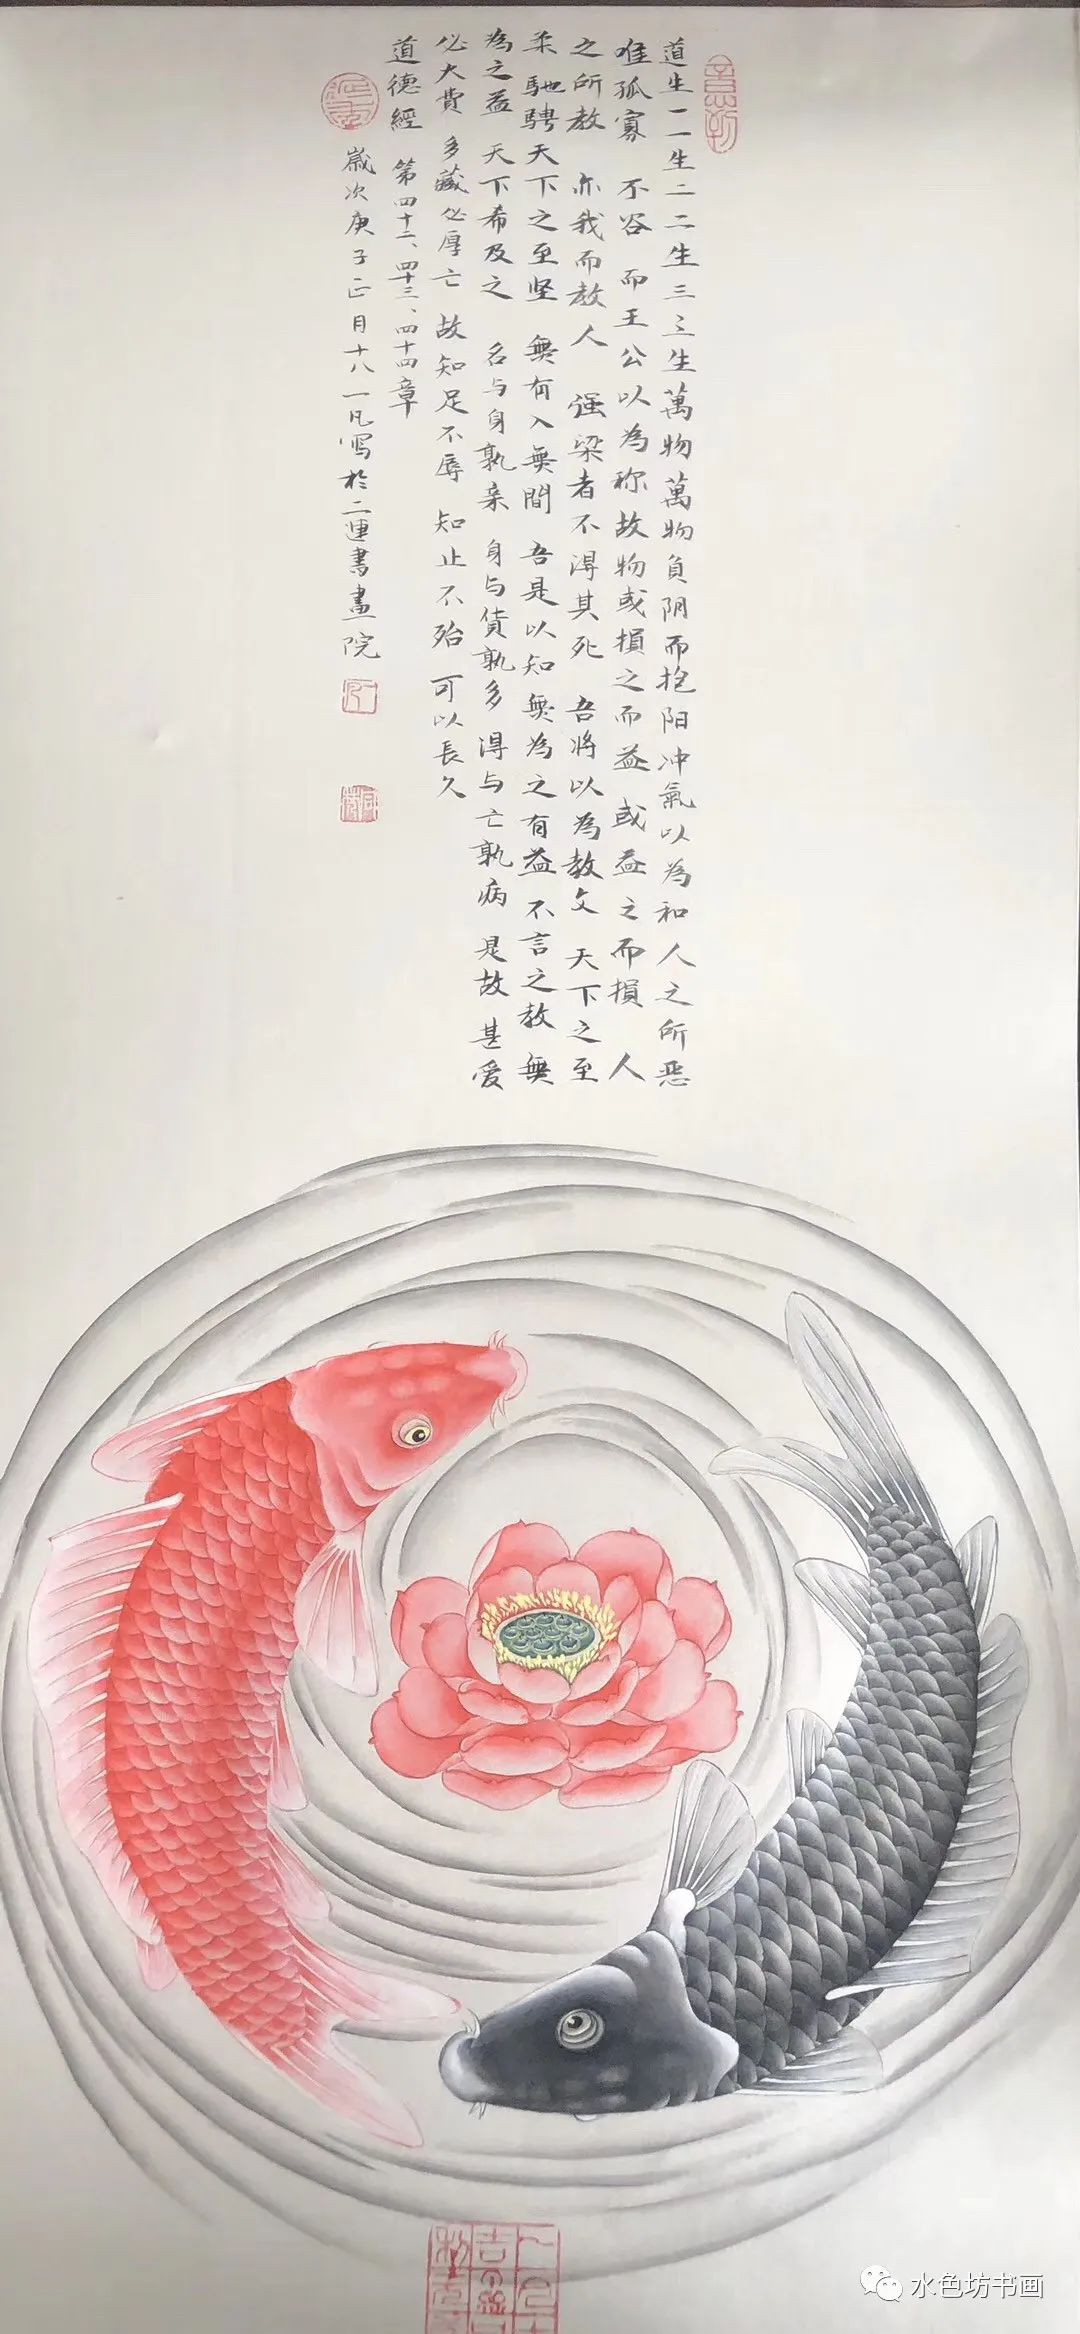 道生一一生二二生三三生萬物萬物負阴而抱阳冲氣以為和人之所惡
唯孤寡 不谷 而王公以為称故物或損之而益 或益之而損 人
之所教 亦我而教人 强梁者不得其死 吾将以為教父 天下之至
柔 馳騁天下之至坚 無有入無間 吾是以知無為之有益 不言之教 無
為之益 天下希及之 名与身孰亲 身与貨孰多 得与亡孰病 是故 甚爱
必大費 多藏必厚亡 故知足不辱 知止不殆 可以長久
道德經 第四十二、四十三、四十四章
歲次庚子正月十八一凡写於二連書畫院
水色坊书画